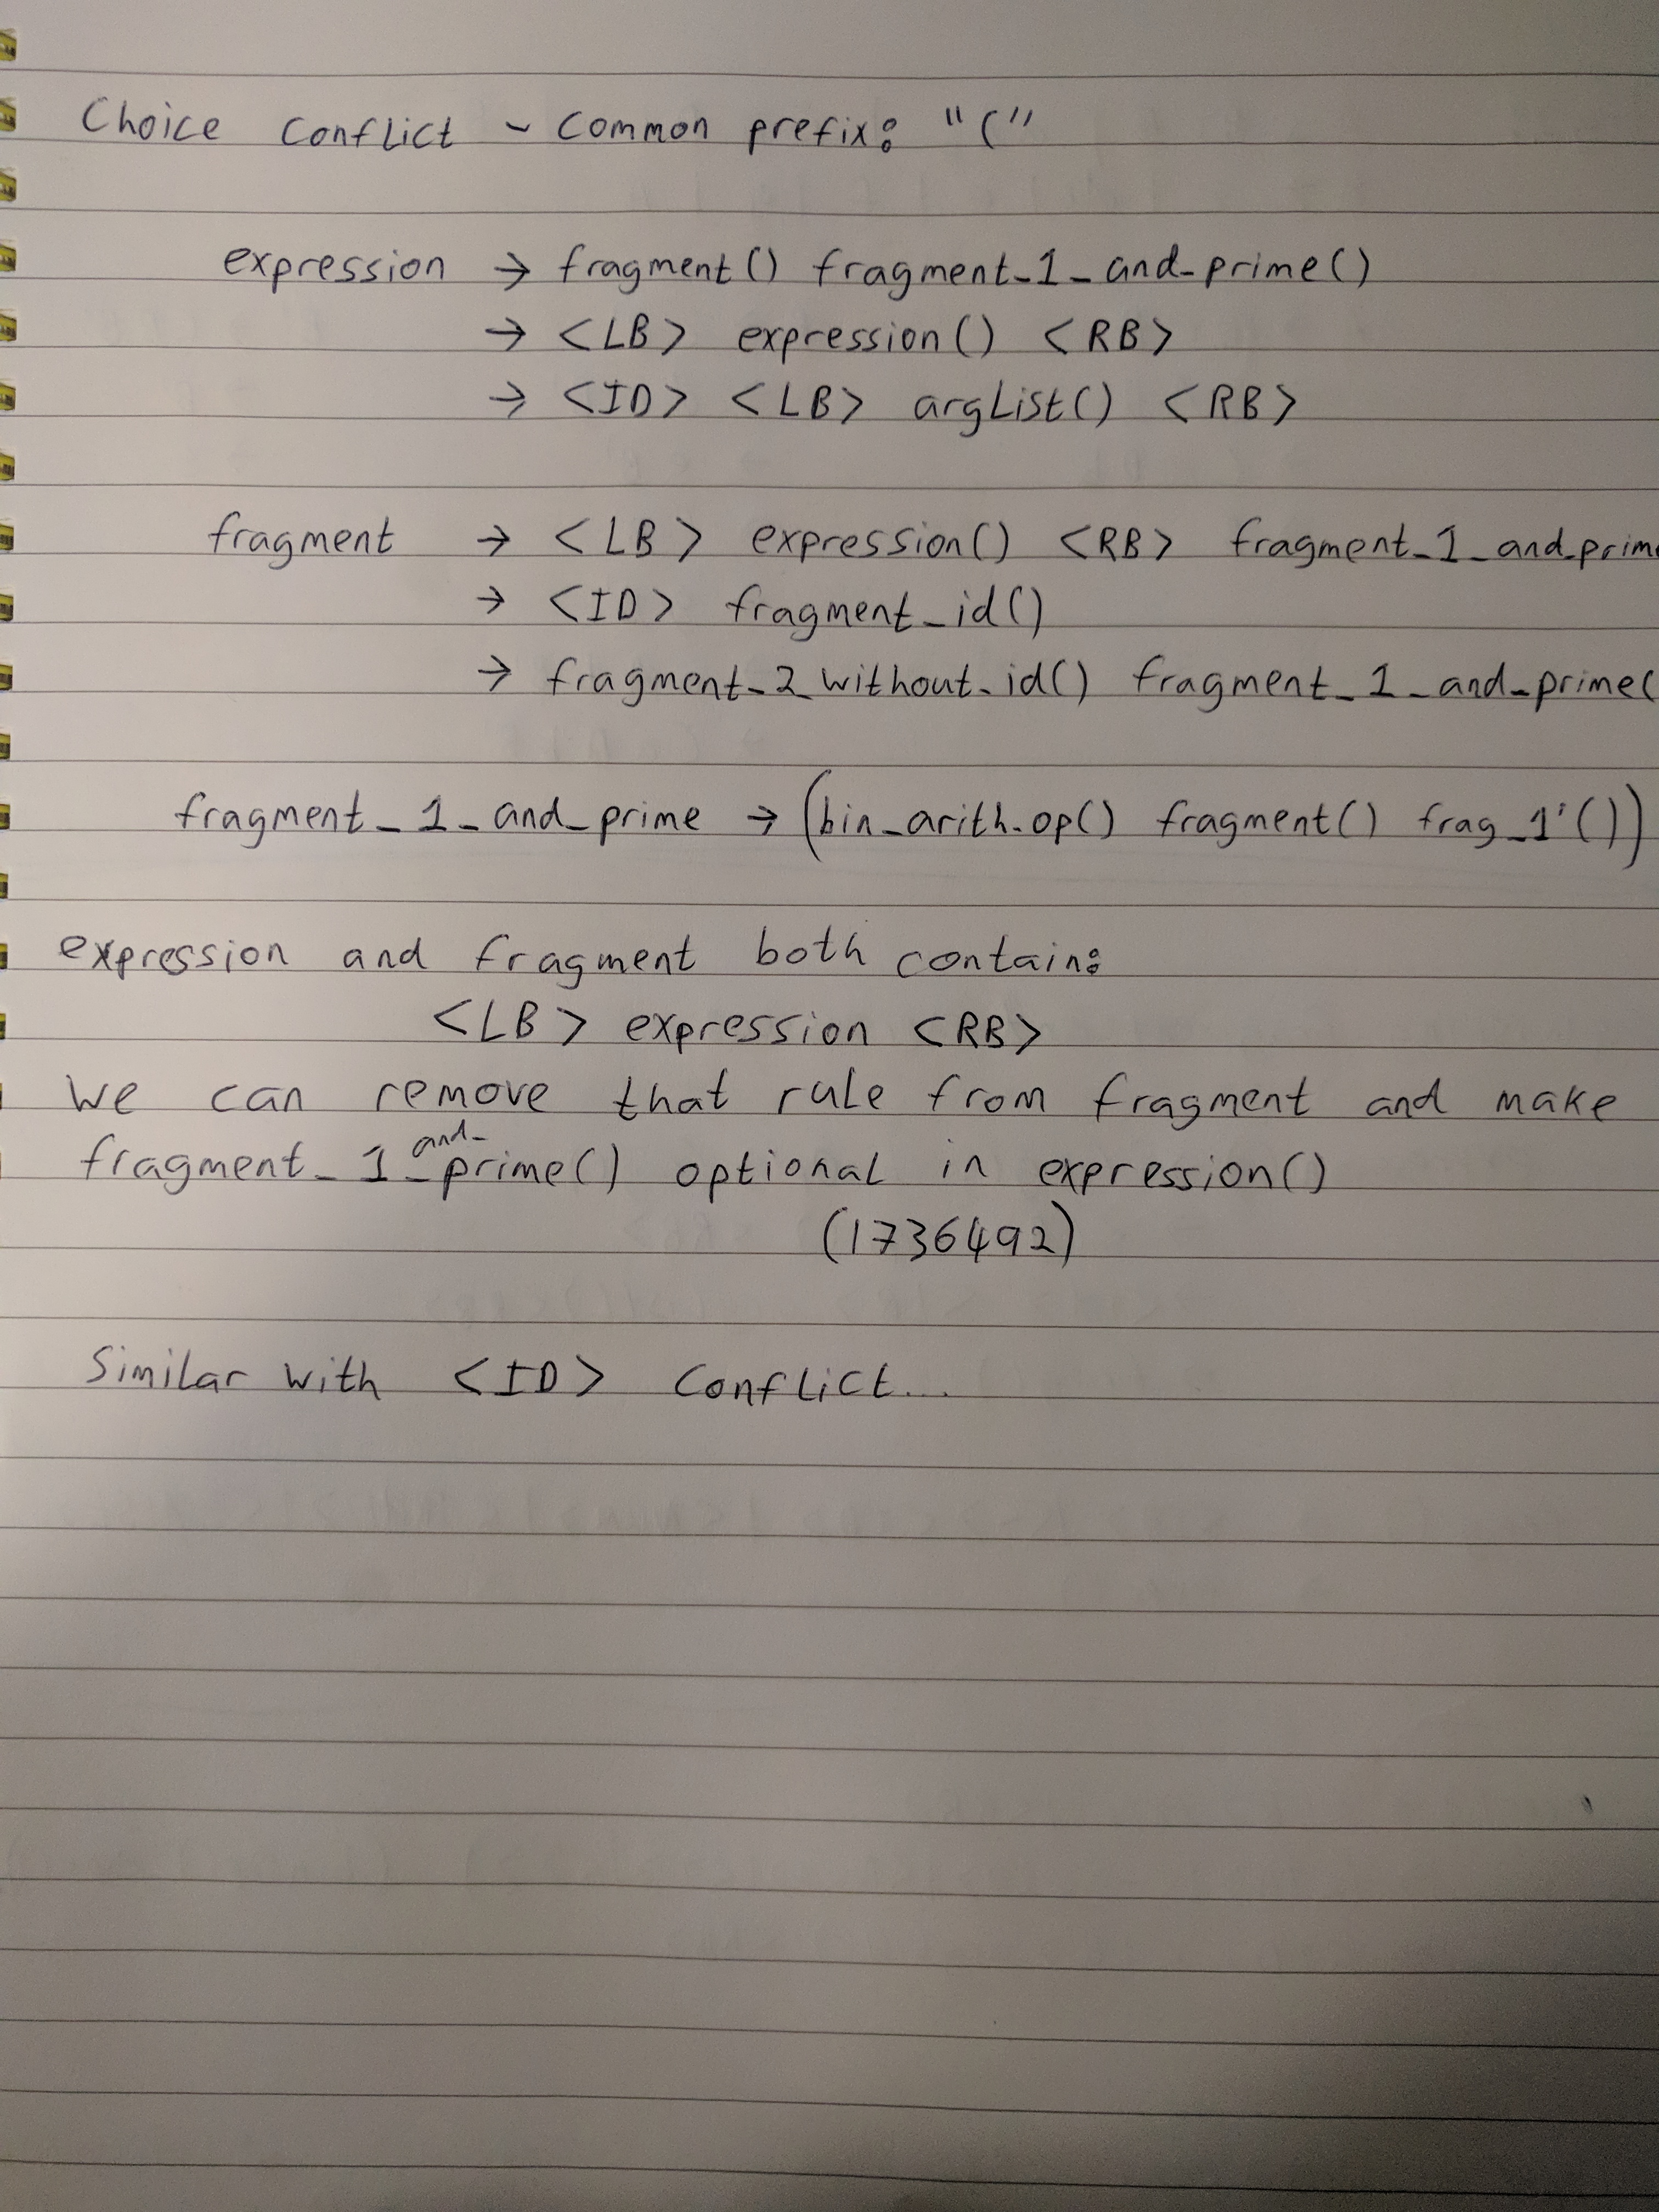 Choice Conflict ~ Common prefix: "("
expression → fragment() fragment_1_and_prime()
→ <LB> expression() <RB>
→ <ID> <LB> argList() <RB>
fragment → <LB> expression() <RB> fragment_1_and_prim
→ <ID> fragment_id()
→ fragment_2_without_id() fragment_1_and_prime(
fragment_1_and_prime → (bin_arith_op() fragment() frag_1'())
expression and fragment both contain:
<LB> expression <RB>
We can remove that rule from fragment and make
fragment_1_and_prime() optional in expression()
(1736492)
Similar with <ID> Conflict...